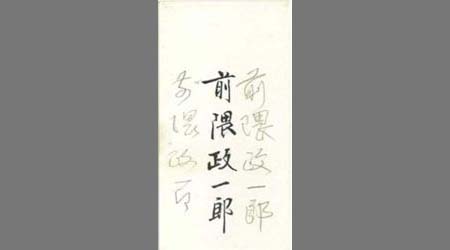 前隈政一郎
前隈政一郎
前隈政一郎